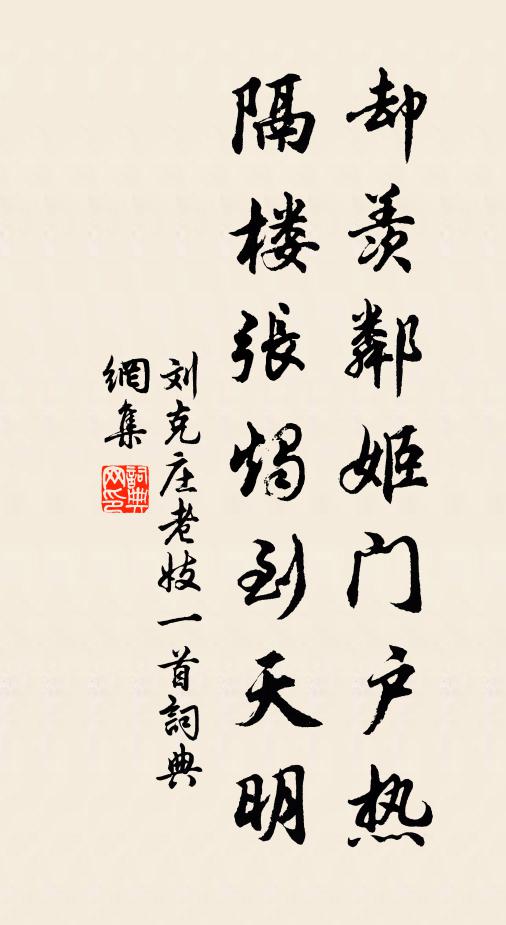 却羡鄰姬门户热
隔楼張燭到天明
刘克庄老妓一首詞典
網集
詞典
网印